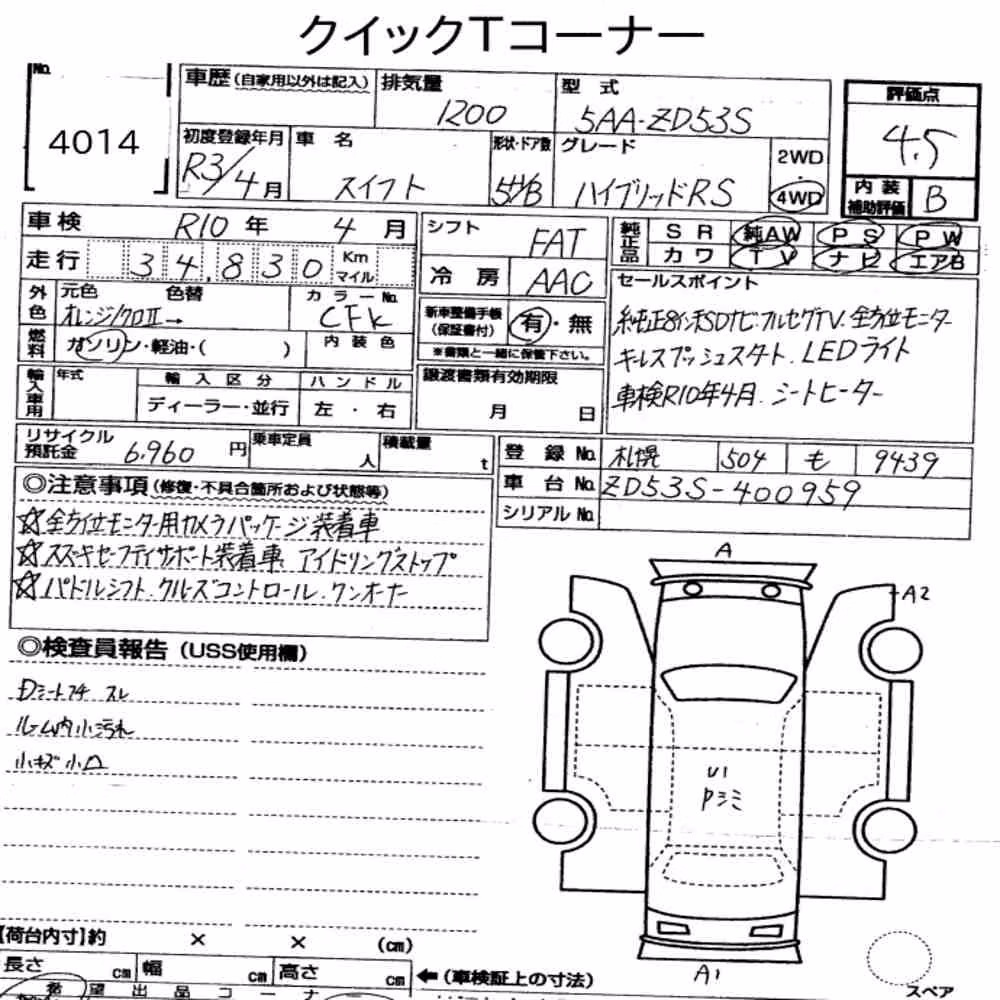 クイックTコーナー
No.
4014
車歴(自家用以外は記入)
排気量
1200
型式
5AA-ZD53S
評価点
4.5
初度登録年月
R3/4月
車名
スイフト
形状・ドア数
5H/B
グレード
ハイブリッドRS
2WD
・
4WD
内装
補助評価
B
車検 R10年 4月
走行 34,830 Km
マイル
シフト
FAT
冷房 AAC
純正品
SR 純AW PS PW
カワ TV ナビ エアB
外色
元色 色替
オレンジ/クロII→
カラーNo.
CFK
内装色
燃料
ガソリン・軽油・( )
新車整備手帳
(保証書付)
有・無
※書類と一緒に保管下さい。
セールスポイント
純正8インチSDナビ・フルセグTV. 全方位モニター
キーレスプッシュスタート. LEDライト
車検R10年4月. シートヒーター
輸入車用
年式
輸入区分
ディーラー・並行
ハンドル
左・右
譲渡書類有効期限
月 日
リサイクル
預託金 6,960円
乗車定員
人
積載量
t
登録No. 札幌 504 も 9439
車台No. ZD53S-400959
シリアルNo.
◎注意事項(修復・不具合箇所および状態等)
☆全方位モニター用カメラパッケージ装着車
☆スズキセーフティサポート装着車、アイドリングストップ
☆パドルシフト. クルーズコントロール. ワンオーナー
◎検査員報告(USS使用欄)
Dシート スレ
ルーム内小汚れ
小キズ小凹
A
A2
U1
Pシミ
A1
スペア
【荷台内寸】約 × × (cm)
長さ cm 幅 cm 高さ cm
←(車検証上の寸法)
希望出品コーナー